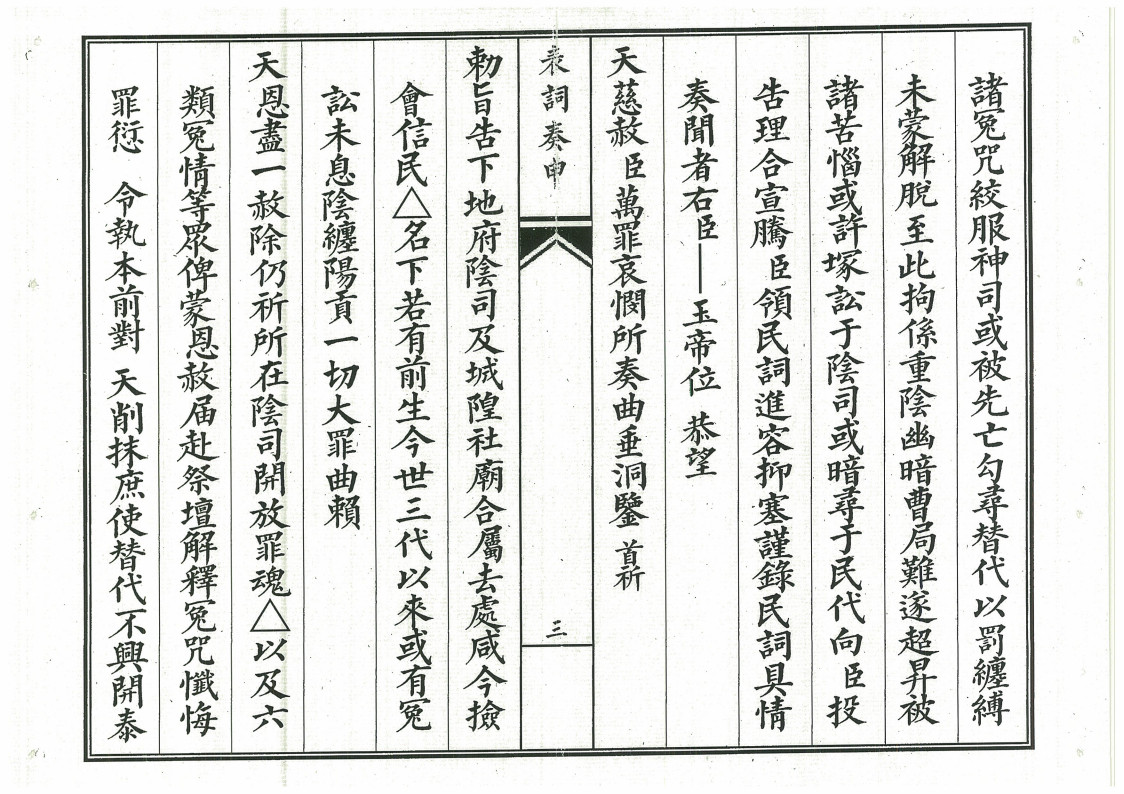 諸冤咒絞服神司或被先亡勾尋替代以罰纏縛
未蒙解脫至此拘係重陰幽暗曹局難遂超昇被
諸苦惱或許塚訟于陰司或暗尋于民代向臣投
告理合宣騰臣領民詞進容抑塞謹錄民詞具情
奏聞者右臣——玉帝位 恭望
天慈赦臣萬罪哀憫所奏曲垂洞鑒 首祈
表詞奏申
三
勅旨告下地府陰司及城隍社廟合屬去處咸令撿
會信民△名下若有前生今世三代以來或有冤
訟未息陰纏陽責一切大罪曲賴
天恩盡一赦除仍祈所在陰司開放罪魂△以及六
類冤情等眾俾蒙恩赦届赴祭壇解釋冤咒懺悔
罪愆 令執本前對 天削抹庶使替代不興開泰